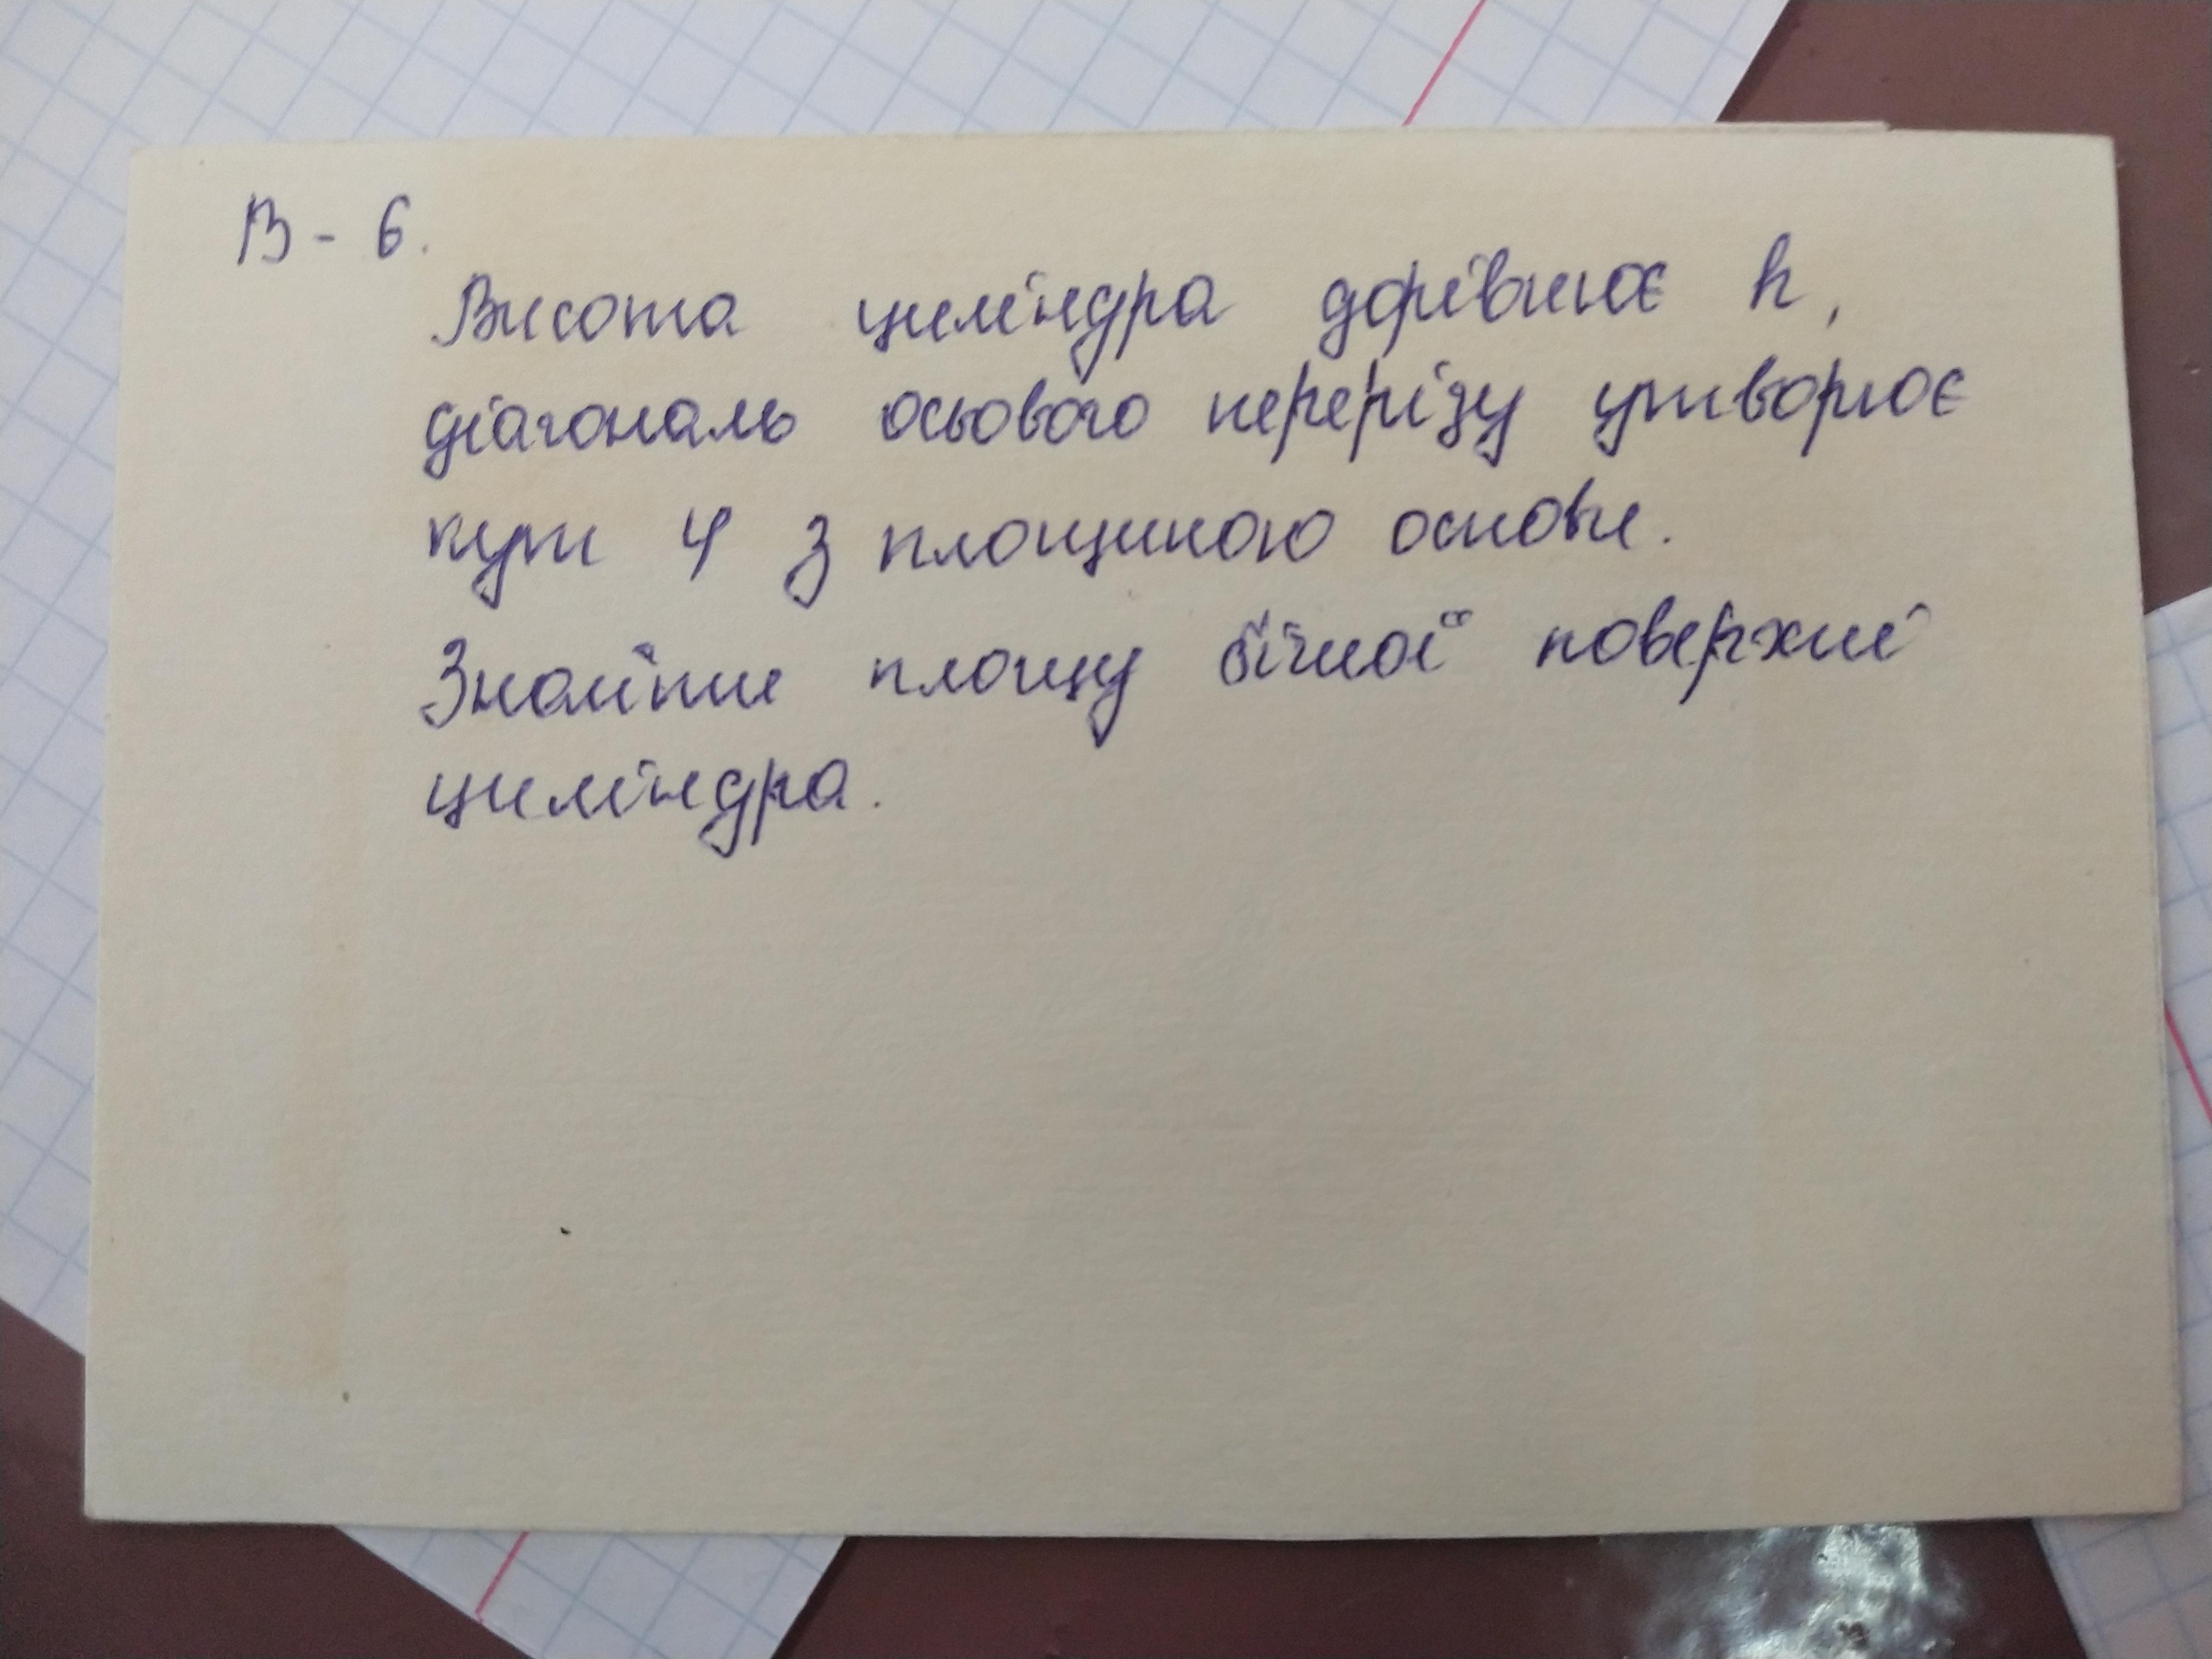 В - 6.
Висота циліндра дорівнює h,
діагональ осьового перерізу утворює
кут φ з площиною основи.
Знайти площу бічної поверхні
циліндра.